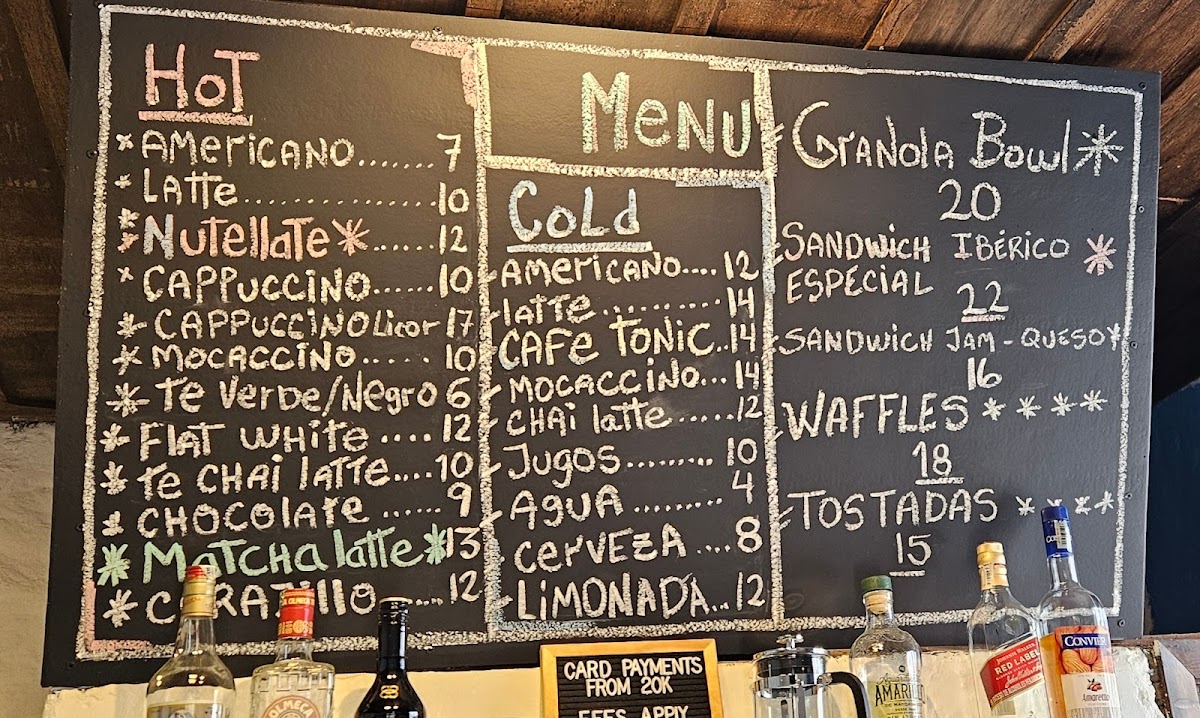 Hot
AMericANO.......7
LATTe..............10
Nutellate......12
CAPPUCCINO......10
CAPPUCCINO Licor 17
MOCACCINO.....10
Te Verde/Negro 6
FLAT WHITE....12
Te CHAI LATTE....10
CHOCOLATE......9
Matcha latte 13
......12
Menu
Cold
AMericANO....12
latte..........14
CAFE TONIC..14
MOCACCINO...14
CHAI latte.....12
Jugos........10
AGUA........4
cerveZA....8
LiMONADA..12
Granola Bowl
20
SANDWicH IBÉRICO
ESPECIAL
22
SANDWicH JAM-QUESO
16
WAFFLES
18
TOSTADAS
15
CARD PAYMENTS
FROM 20K
FEES APPLY
OLMECA
AMARILLO
RED LABEL
CONVIER
Amaretto